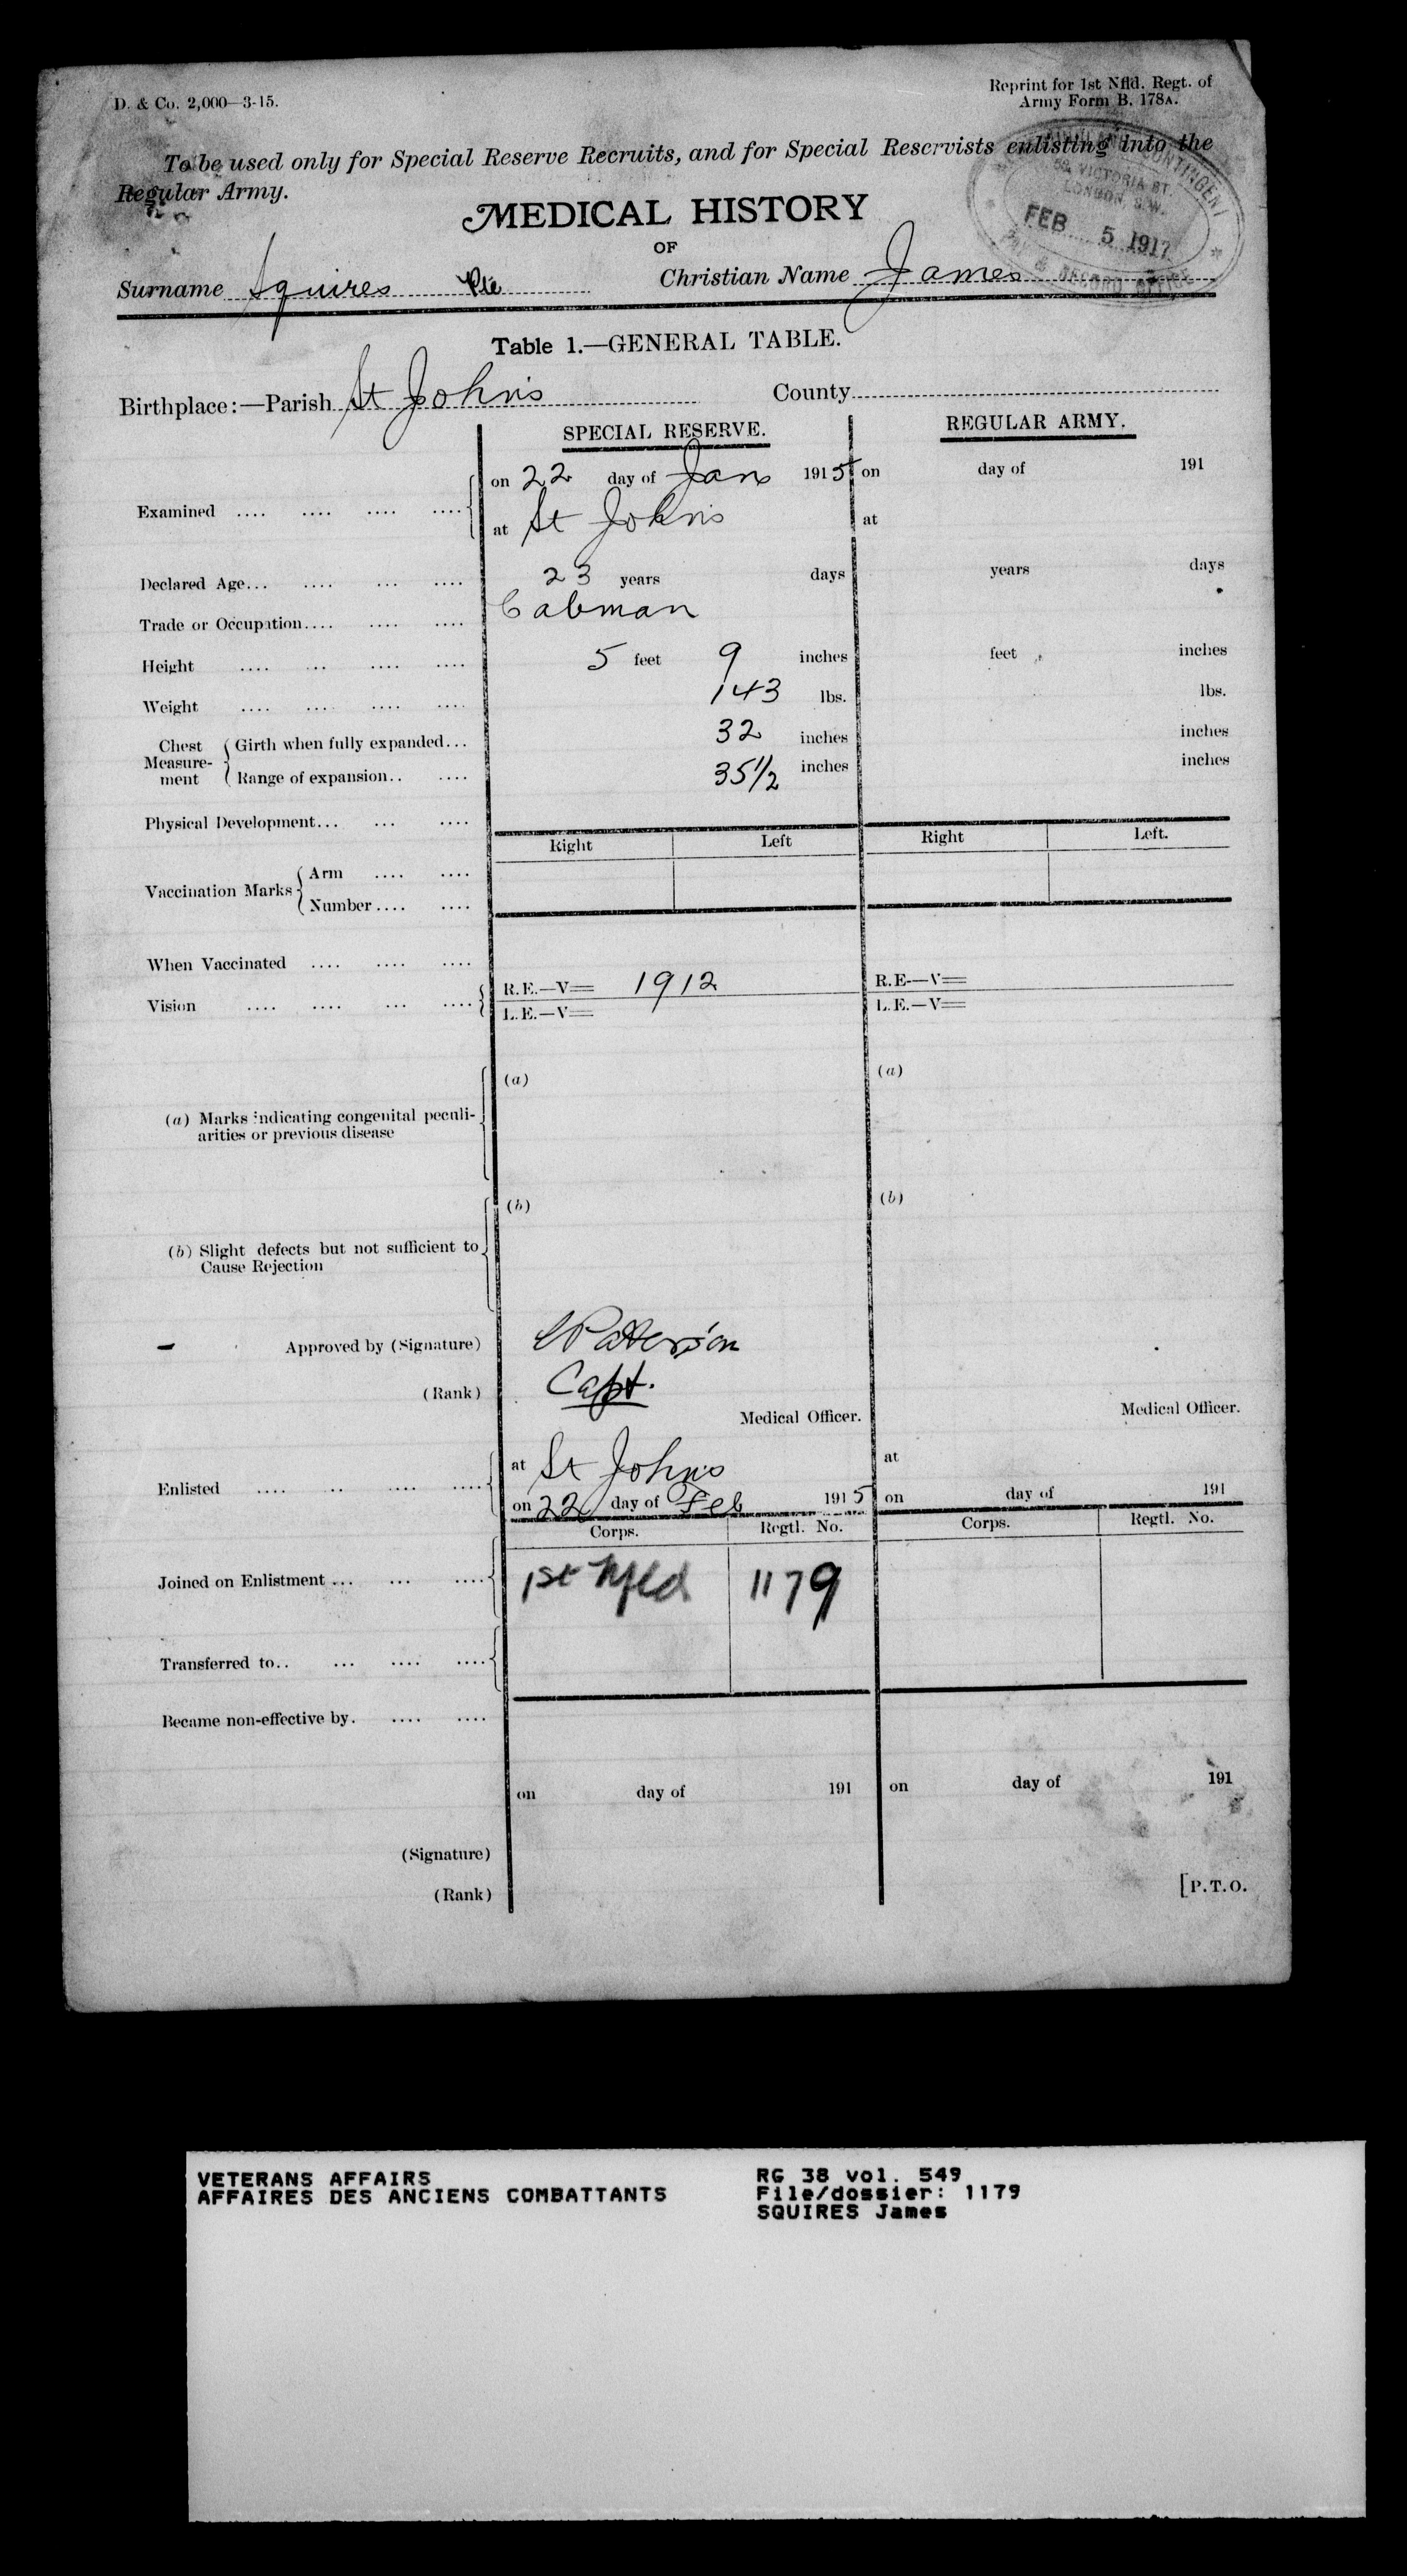 D. & Co. 2,000—3-15.
Reprint for 1st Nfld. Regt. of
Army Form B. 178A.
To be used only for Special Reserve Recruits, and for Special Reservists enlisting into the
Regular Army.
CONTINGENT
58, VICTORIA ST.
LONDON, S.W.
FEB 5 1917
PAY & RECORD OFFICE
MEDICAL HISTORY
OF
Surname Squires Pte Christian Name James
Table 1.—GENERAL TABLE.
Birthplace:—Parish St John's County
SPECIAL RESERVE. REGULAR ARMY.
on 22 day of Jan 1915 on day of 191
Examined .... .... .... ....
at St John's at
Declared Age... .... ... .... 23 years days years days
Trade or Occupation.... .... .... Cabman
Height .... ... .... .... 5 feet 9 inches feet inches
Weight .... .... .... .... 143 lbs. lbs.
Chest Measurement Girth when fully expanded... 32 inches inches
Range of expansion.. .... 35 1/2 inches inches
Physical Development... ... ....
Right Left Right Left.
Vaccination Marks Arm .... ....
Number.... ....
When Vaccinated .... .... ....
Vision .... .... ... .... R.E.—V= 1912 R.E—V=
L.E.—V= L.E.—V=
(a) (a)
(a) Marks indicating congenital peculi-
arities or previous disease
(b) (b)
(b) Slight defects but not sufficient to
Cause Rejection
Approved by (Signature) Patterson
(Rank) Capt.
Medical Officer. Medical Officer.
at St John's at
Enlisted .... .. .... ....
on 22 day of Feb 1915 on day of 191
Corps. Regtl. No. Corps. Regtl. No.
Joined on Enlistment ... ... .... 1st Nfld 1179
Transferred to.. ... .... ....
Became non-effective by. .... ....
on day of 191 on day of 191
(Signature)
(Rank)
[P.T.O.
VETERANS AFFAIRS RG 38 vol. 549
AFFAIRES DES ANCIENS COMBATTANTS File/dossier: 1179
SQUIRES James